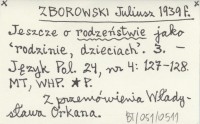 ZBOROWSKI Juliusz 1939 r.
Jeszcze o rodzeństwie jako
'rodzinie, dzieciach'. 3. —
Język Pol. 24, nr 4: 127-128.
MT, WHP. *P.
Z przemówienia Włady-
sława Orkana.
BJ/051/0511